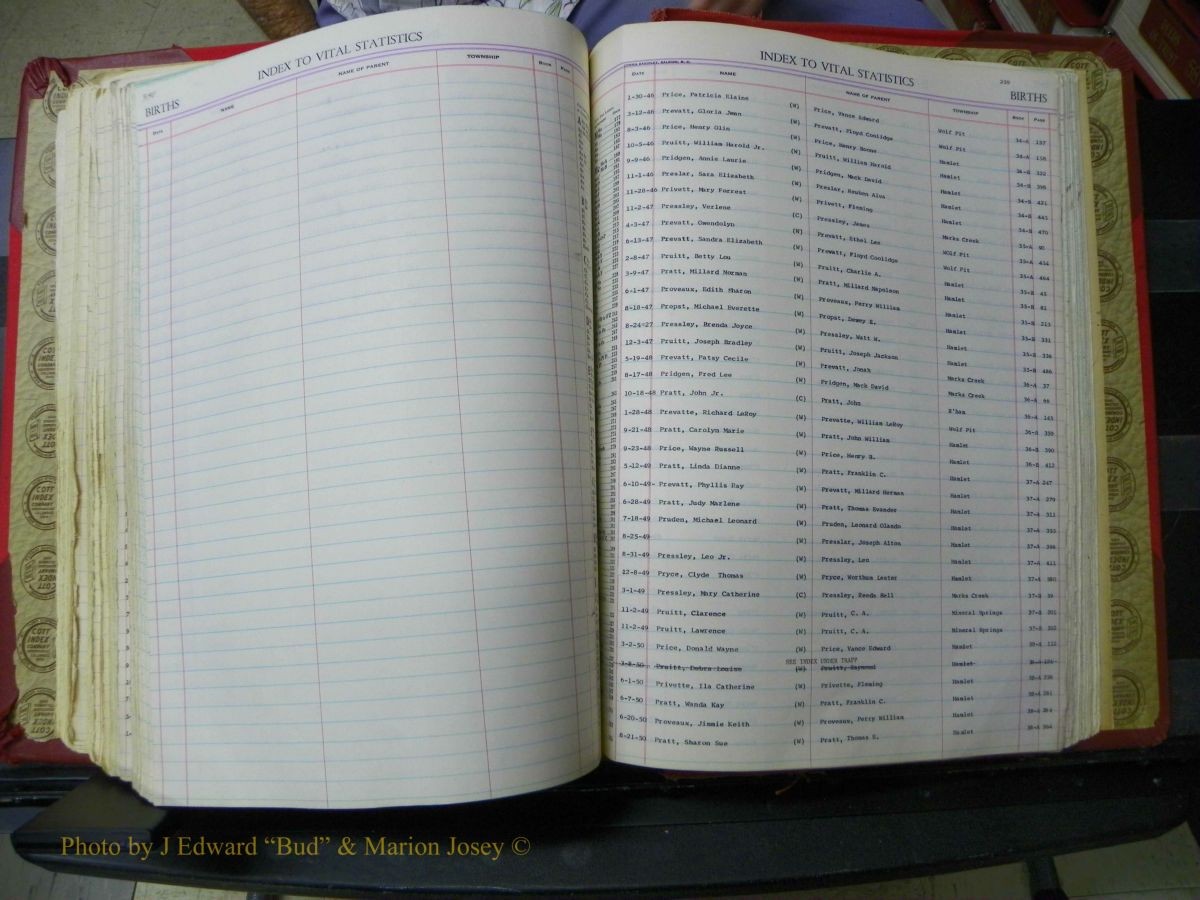 INDEX TO VITAL STATISTICS
BIRTHS
Date NAME NAME OF PARENT TOWNSHIP BOOK PAGE
INDEX TO VITAL STATISTICS
BIRTHS
DATE NAME NAME OF PARENT TOWNSHIP BOOK PAGE
1-30-46 Price, Patricia Elaine (W) Price, Vance Edward Wolf Pit 34-A 137
3-12-46 Prevatt, Gloria Jean (W) Prevatt, Floyd Coolidge Wolf Pit 34-A 158
8-3-46 Price, Henry Olin (W) Price, Henry Boone Hamlet 34-B
10-5-46 Pruitt, William Harold Jr. (W) Pruitt, William Harold Hamlet 34-B
9-9-46 Pridgen, Annie Laurie (W) Pridgen, Mack David Hamlet 34-B 421
11-1-46 Preslar, Sara Elizabeth (W) Preslar, Reuben Alva Hamlet 34-B
11-28-46 Privett, Mary Forrest (W) Privett, Fleming Hamlet 34-B 470
11-2-47 Pressley, Verlene (C) Pressley, James Marks Creek 35-A
4-3-47 Prevatt, Gwendolyn (W) Prevatt, Ethel Lee Wolf Pit 35-A 454
6-13-47 Prevatt, Sandra Elizabeth (W) Prevatt, Floyd Coolidge Wolf Pit 35-A 464
2-8-47 Pruitt, Betty Lou (W) Pruitt, Charlie A. Hamlet 35-B 45
3-9-47 Pratt, Millard Norman (W) Pratt, Millard Napoleon Hamlet 35-B
6-1-47 Proveaux, Edith Sharon (W) Proveaux, Perry William Hamlet 35-B 213
8-18-47 Propst, Michael Everette (W) Propst, Dewey E. Hamlet 35-B 331
8-24-27 Pressley, Brenda Joyce (W) Pressley, Watt W. Hamlet 35-B 336
12-3-47 Pruitt, Joseph Bradley (W) Pruitt, Joseph Jackson Hamlet 35-B 486
5-19-48 Prevatt, Patsy Cecile (W) Prevatt, Jonah Marks Creek 36-A 37
8-17-48 Pridgen, Fred Lee (W) Pridgen, Mack David Marks Creek 36-A 66
10-18-48 Pratt, John Jr. (C) Pratt, John R'ham 36-A
1-28-48 Prevatte, Richard LeRoy (W) Prevatte, William LeRoy Wolf Pit 36-A 359
9-21-48 Pratt, Carolyn Marie (W) Pratt, John William Hamlet 36-B 390
9-23-48 Price, Wayne Russell (W) Price, Henry B. Hamlet 36-B 412
5-12-49 Pratt, Linda Dianne (W) Pratt, Franklin C. Hamlet 37-A 247
6-10-49- Prevatt, Phyllis Ray (W) Prevatt, Millard Herman Hamlet 37-A 279
6-28-49 Pratt, Judy Marlene (W) Pratt, Thomas Evander Hamlet 37-A 311
7-18-49 Pruden, Michael Leonard (W) Pruden, Leonard Olando Hamlet 37-A
8-25-49 (W) Preslar, Joseph Alton Hamlet 37-A 396
8-31-49 Pressley, Leo Jr. (W) Pressley, Leo Hamlet 37-A 411
12-8-49 Pryce, Clyde Thomas (W) Pryce, Worthum Lester Hamlet 37-A
3-1-49 Pressley, Mary Catherine (C) Pressley, Reeda Bell Marks Creek 37-B 39
11-2-49 Pruitt, Clarence (W) Pruitt, C. A. Mineral Springs 37-B
11-2-49 Pruitt, Lawrence (W) Pruitt, C. A. Mineral Springs 37-B
3-2-50 Price, Donald Wayne (W) Price, Vance Edward Hamlet 38-A
SEE INDEX UNDER TRAPP
3-8-50 Pruitt, Debra Louise (W) Pruitt, Raymond Hamlet 38-A
6-1-50 Privette, Ila Catherine (W) Privette, Fleming Hamlet 38-A
6-7-50 Pratt, Wanda Kay (W) Pratt, Franklin C. Hamlet 38-A
6-20-50 Proveaux, Jimmie Keith (W) Proveaux, Perry William Hamlet 38-A
8-21-50 Pratt, Sharon Sue (W) Pratt, Thomas E. Hamlet 38-A
Photo by J Edward “Bud” & Marion Josey ©